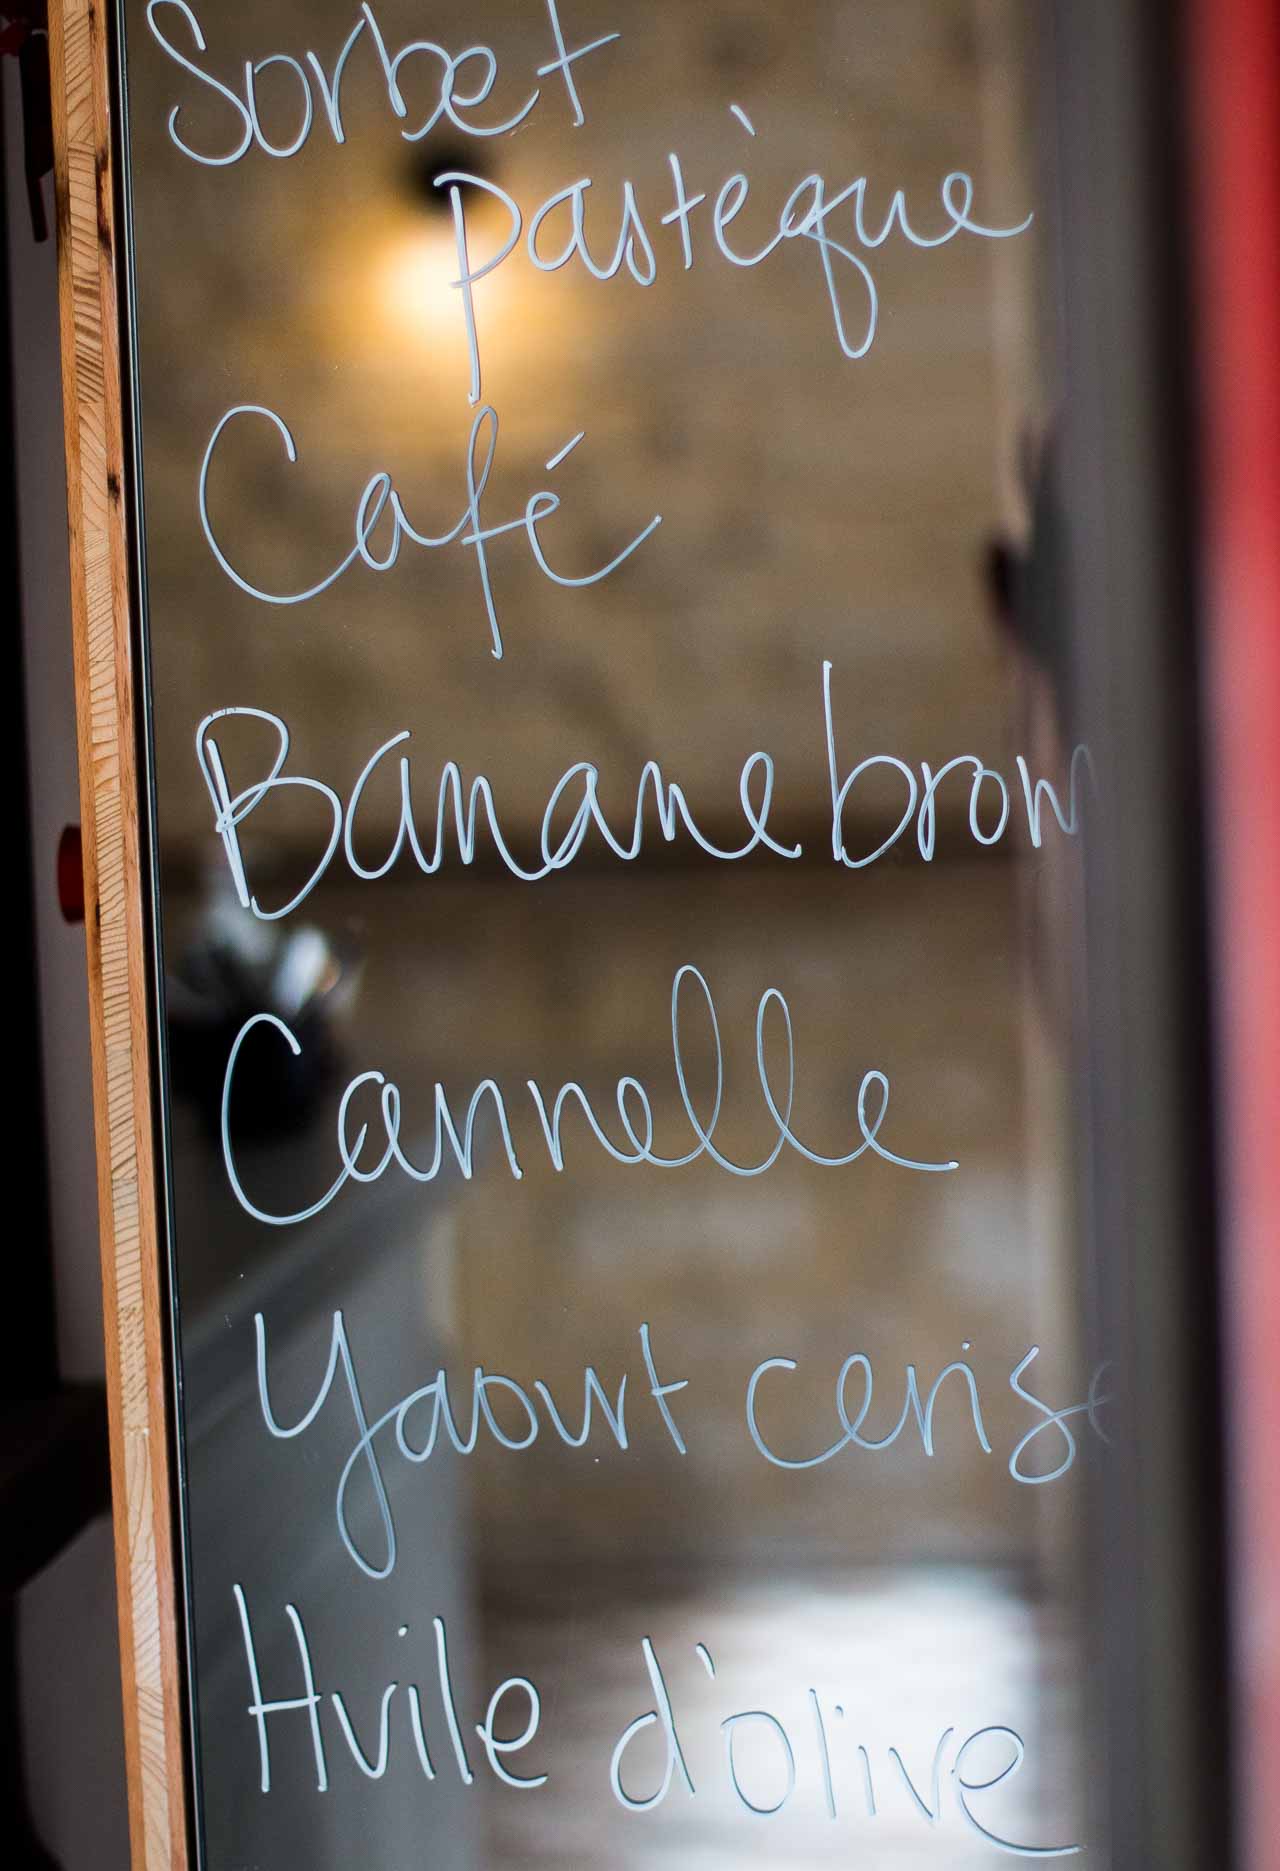 Sorbet
pastèque
Café
Banane brow
Cannelle
Yaourt cerise
Huile d'olive